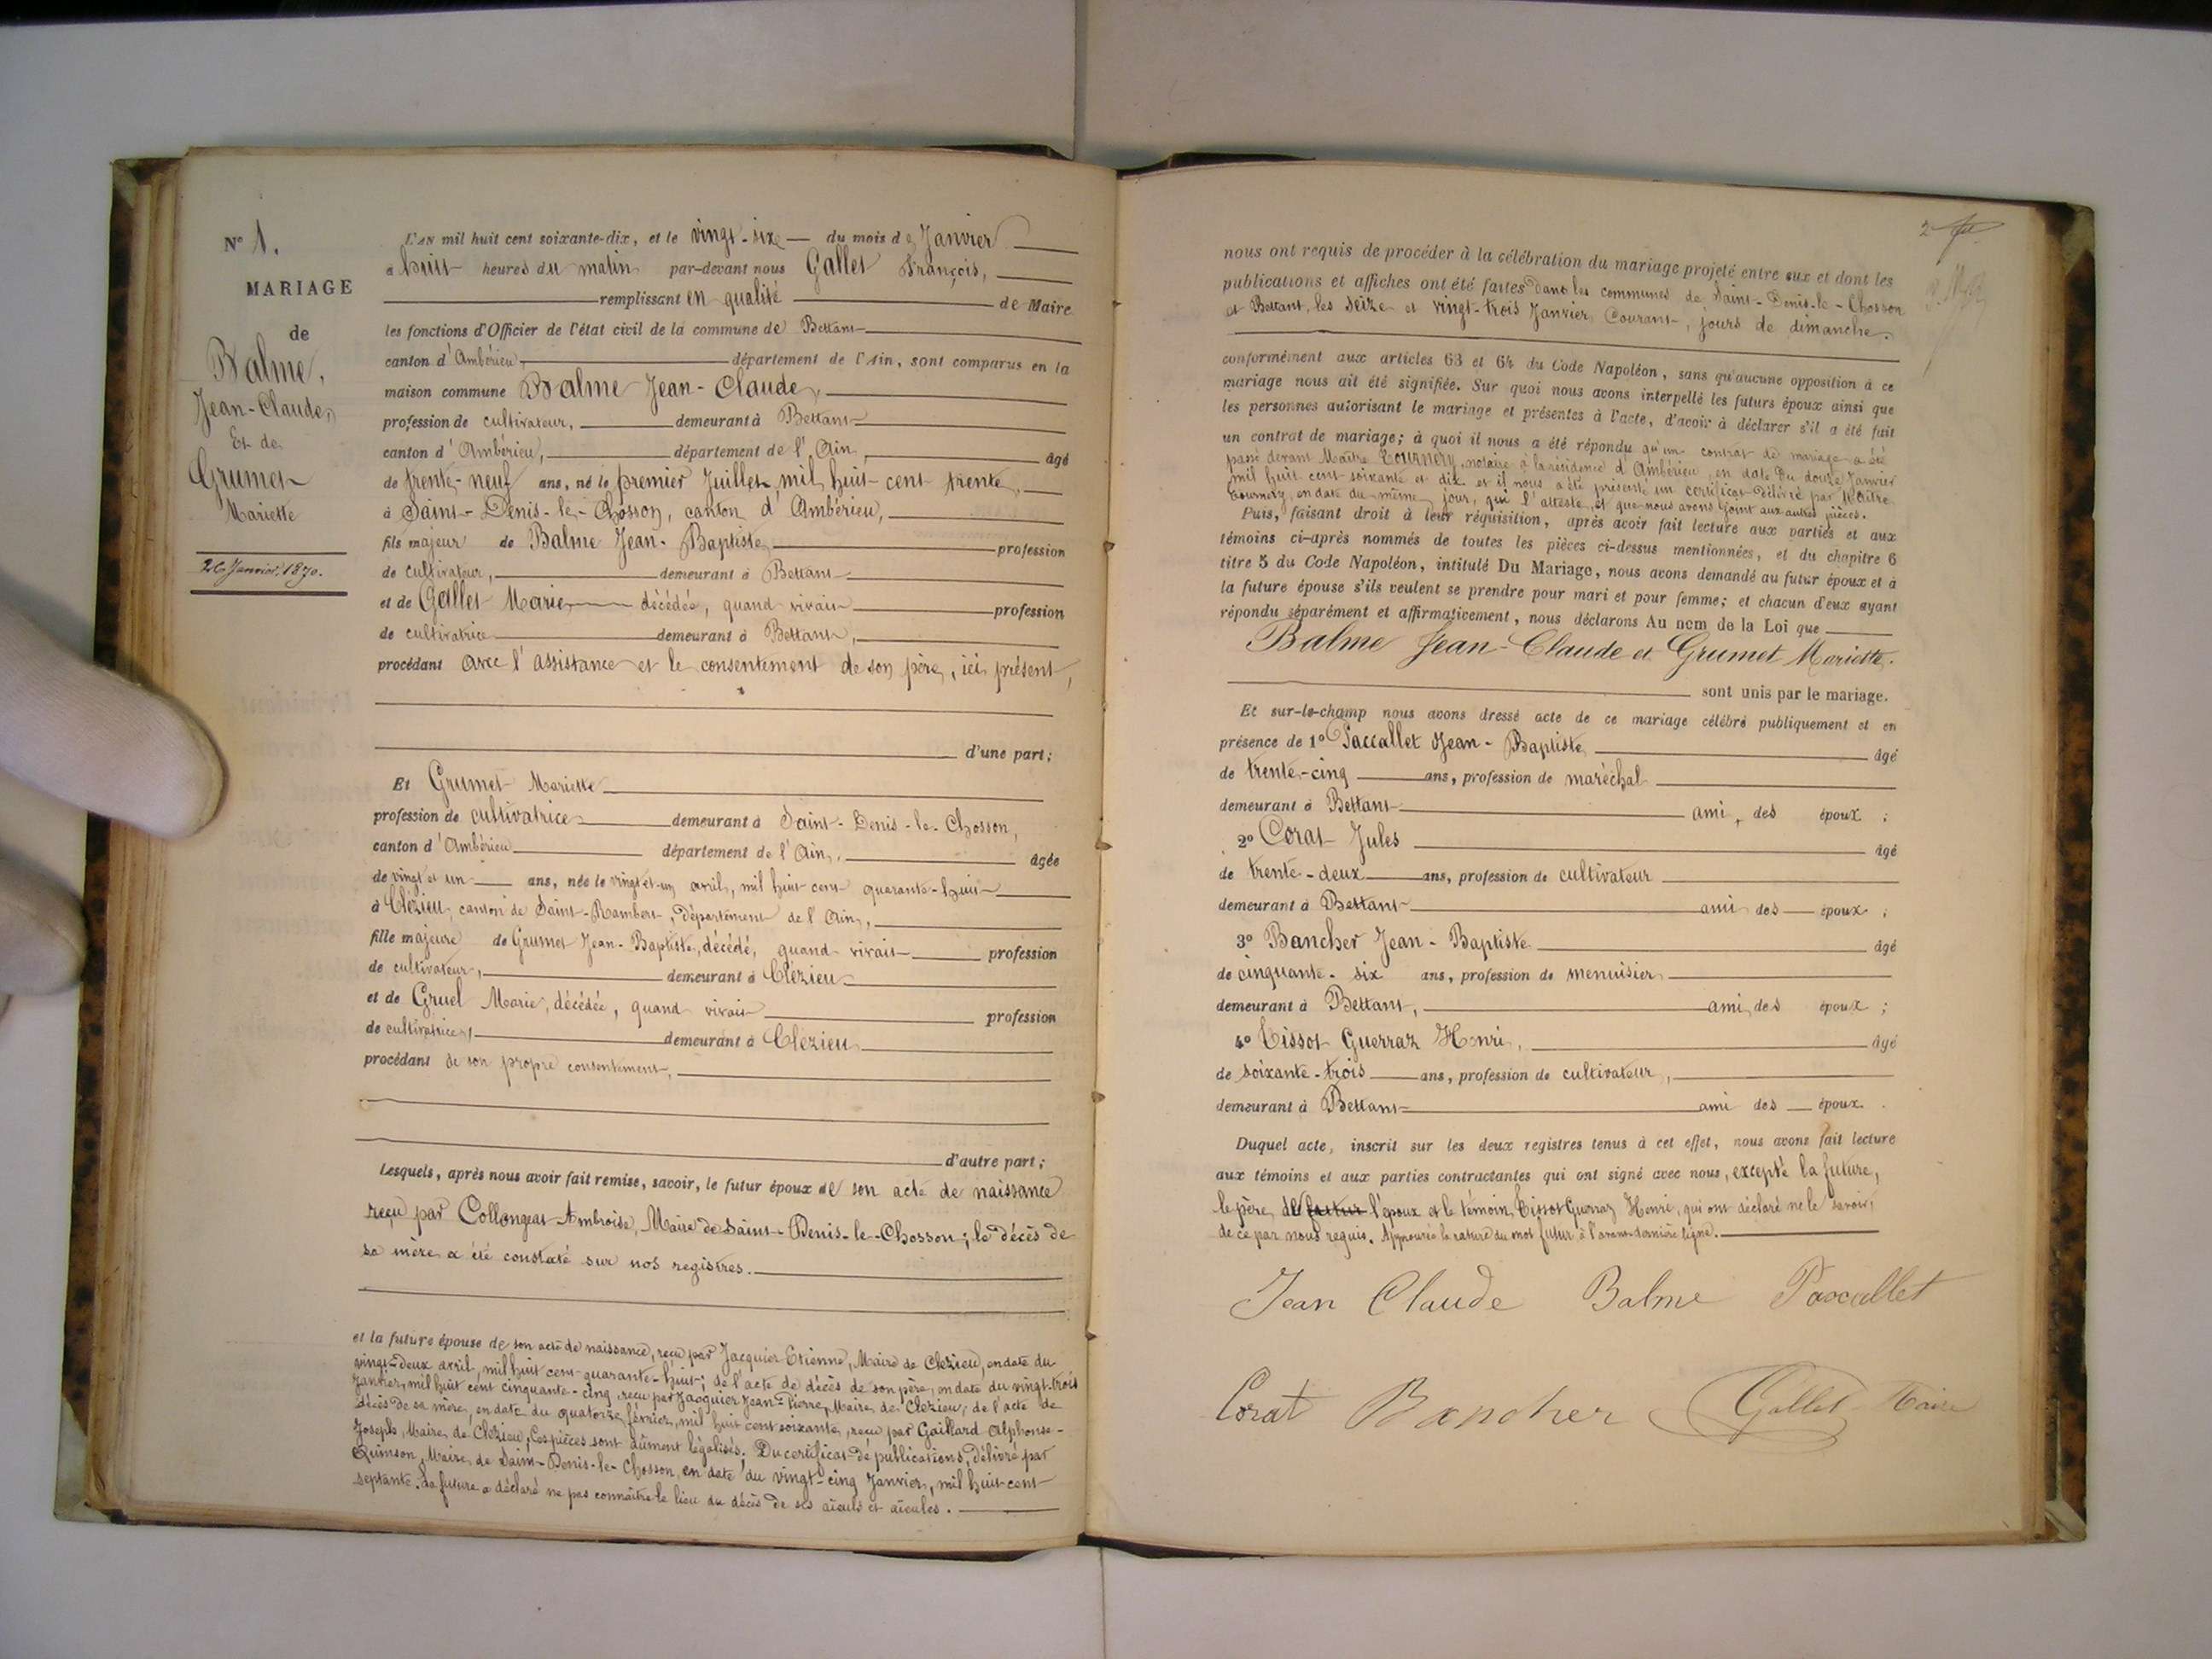 N° 1.
MARIAGE
de
Balme,
Jean-Claude,
Et de
Grumet
Mariette
26 Janvier, 1870.
L'AN mil huit cent soixante-dix, et le vingt-six du mois de Janvier
à huit heures du matin par-devant nous Gallet François,
remplissant en qualité de Maire
les fonctions d'Officier de l'état civil de la commune de Bettant
canton d'Ambérieu, département de l'Ain, sont comparus en la
maison commune Balme Jean-Claude,
profession de cultivateur, demeurant à Bettant
canton d'Ambérieu, département de l'Ain, âgé
de trente-neuf ans, né le premier Juillet mil huit cent trente,
à Saint-Denis-le-Chosson, canton d'Ambérieu,
fils majeur de Balme Jean-Baptiste, profession
de cultivateur, demeurant à Bettant
et de Gallet Marie, décédée, quand vivait profession
de cultivatrice demeurant à Bettant,
procédant avec l'assistance et le consentement de son père, ici présent,
d'une part;
Et Grumet Mariette
profession de cultivatrice demeurant à Saint-Denis-le-Chosson,
canton d'Ambérieu département de l'Ain, âgée
de vingt et un ans, née le vingt et un avril, mil huit cent quarante-huit
à Clézieu, canton de Saint-Rambert, département de l'Ain,
fille majeure de Grumet Jean-Baptiste, décédé, quand vivait profession
de cultivateur, demeurant à Clézieu
et de Gruel Marie, décédée, quand vivait profession
de cultivatrice, demeurant à Clézieu
procédant de son propre consentement,
d'autre part;
Lesquels, après nous avoir fait remise, savoir, le futur époux de son acte de naissance
reçu par Collongeat Ambroise, Maire de Saint-Denis-le-Chosson; le décès de
sa mère a été constaté sur nos registres.
et la future épouse de son acte de naissance, reçu par Jacquier Etienne, Maire de Clézieu, en date du
vingt-deux avril, mil huit cent quarante-huit; de l'acte de décès de son père, en date du vingt-trois
Janvier, mil huit cent cinquante-cinq, reçu par Jacquier Jean-Pierre, Maire de Clézieu; de l'acte de
décès de sa mère, en date du quatorze février, mil huit cent soixante, reçu par Gaillard Alphonse-
Joseph, Maire de Clézieu; Ces pièces sont dûment légalisés; Du certificat de publications, délivré par
Quinson, Maire de Saint-Denis-le-Chosson, en date du vingt-cinq Janvier, mil huit cent
septante. La future a déclaré ne pas connaître le lieu du décès de ses aïeuls et aïeules.
2
nous ont requis de procéder à la célébration du mariage projeté entre eux et dont les
publications et affiches ont été faites dans les communes de Saint-Denis-le-Chosson
et Bettant, les seize et vingt-trois Janvier Courant, jours de dimanche.
conformément aux articles 63 et 64 du Code Napoléon, sans qu'aucune opposition à ce
mariage nous ait été signifiée. Sur quoi nous avons interpellé les futurs époux ainsi que
les personnes autorisant le mariage et présentes à l'acte, d'avoir à déclarer s'il a été fait
un contrat de mariage; à quoi il nous a été répondu qu'un contrat de mariage a été
passé devant Maître Tournery, notaire à la résidence d'Ambérieu, en date du douze Janvier
mil huit cent soixante et dix et il nous a été présenté un certificat délivré par Maître
Tournery, en date du même jour, qui l'atteste, et que nous avons joint aux autres pièces.
Puis, faisant droit à leur réquisition, après avoir fait lecture aux parties et aux
témoins ci-après nommés de toutes les pièces ci-dessus mentionnées, et du chapitre 6
titre 5 du Code Napoléon, intitulé Du Mariage, nous avons demandé au futur époux et à
la future épouse s'ils veulent se prendre pour mari et pour femme; et chacun d'eux ayant
répondu séparément et affirmativement, nous déclarons Au nom de la Loi que
Balme Jean-Claude et Grumet Mariette.
sont unis par le mariage.
Et sur-le-champ nous avons dressé acte de ce mariage célébré publiquement et en
présence de 1° Paccallet Jean-Baptiste, âgé
de trente-cinq ans, profession de maréchal
demeurant à Bettant ami des époux;
2° Corat Jules âgé
de trente-deux ans, profession de cultivateur
demeurant à Bettant ami des époux;
3° Bancher Jean-Baptiste âgé
de cinquante-six ans, profession de menuisier
demeurant à Bettant, ami des époux;
4° Tissot Guerraz Henri, âgé
de soixante-trois ans, profession de cultivateur,
demeurant à Bettant ami des époux.
Duquel acte, inscrit sur les deux registres tenus à cet effet, nous avons fait lecture
aux témoins et aux parties contractantes qui ont signé avec nous, excepté la future,
le père de futur l'époux et le témoin Tissot Guerraz Henri, qui ont déclaré ne le savoir,
de ce par nous requis. Approuvée la rature du mot futur à l'avant-dernière ligne.
Jean Claude Balme Paccallet
Corat Bancher Gallet Maire